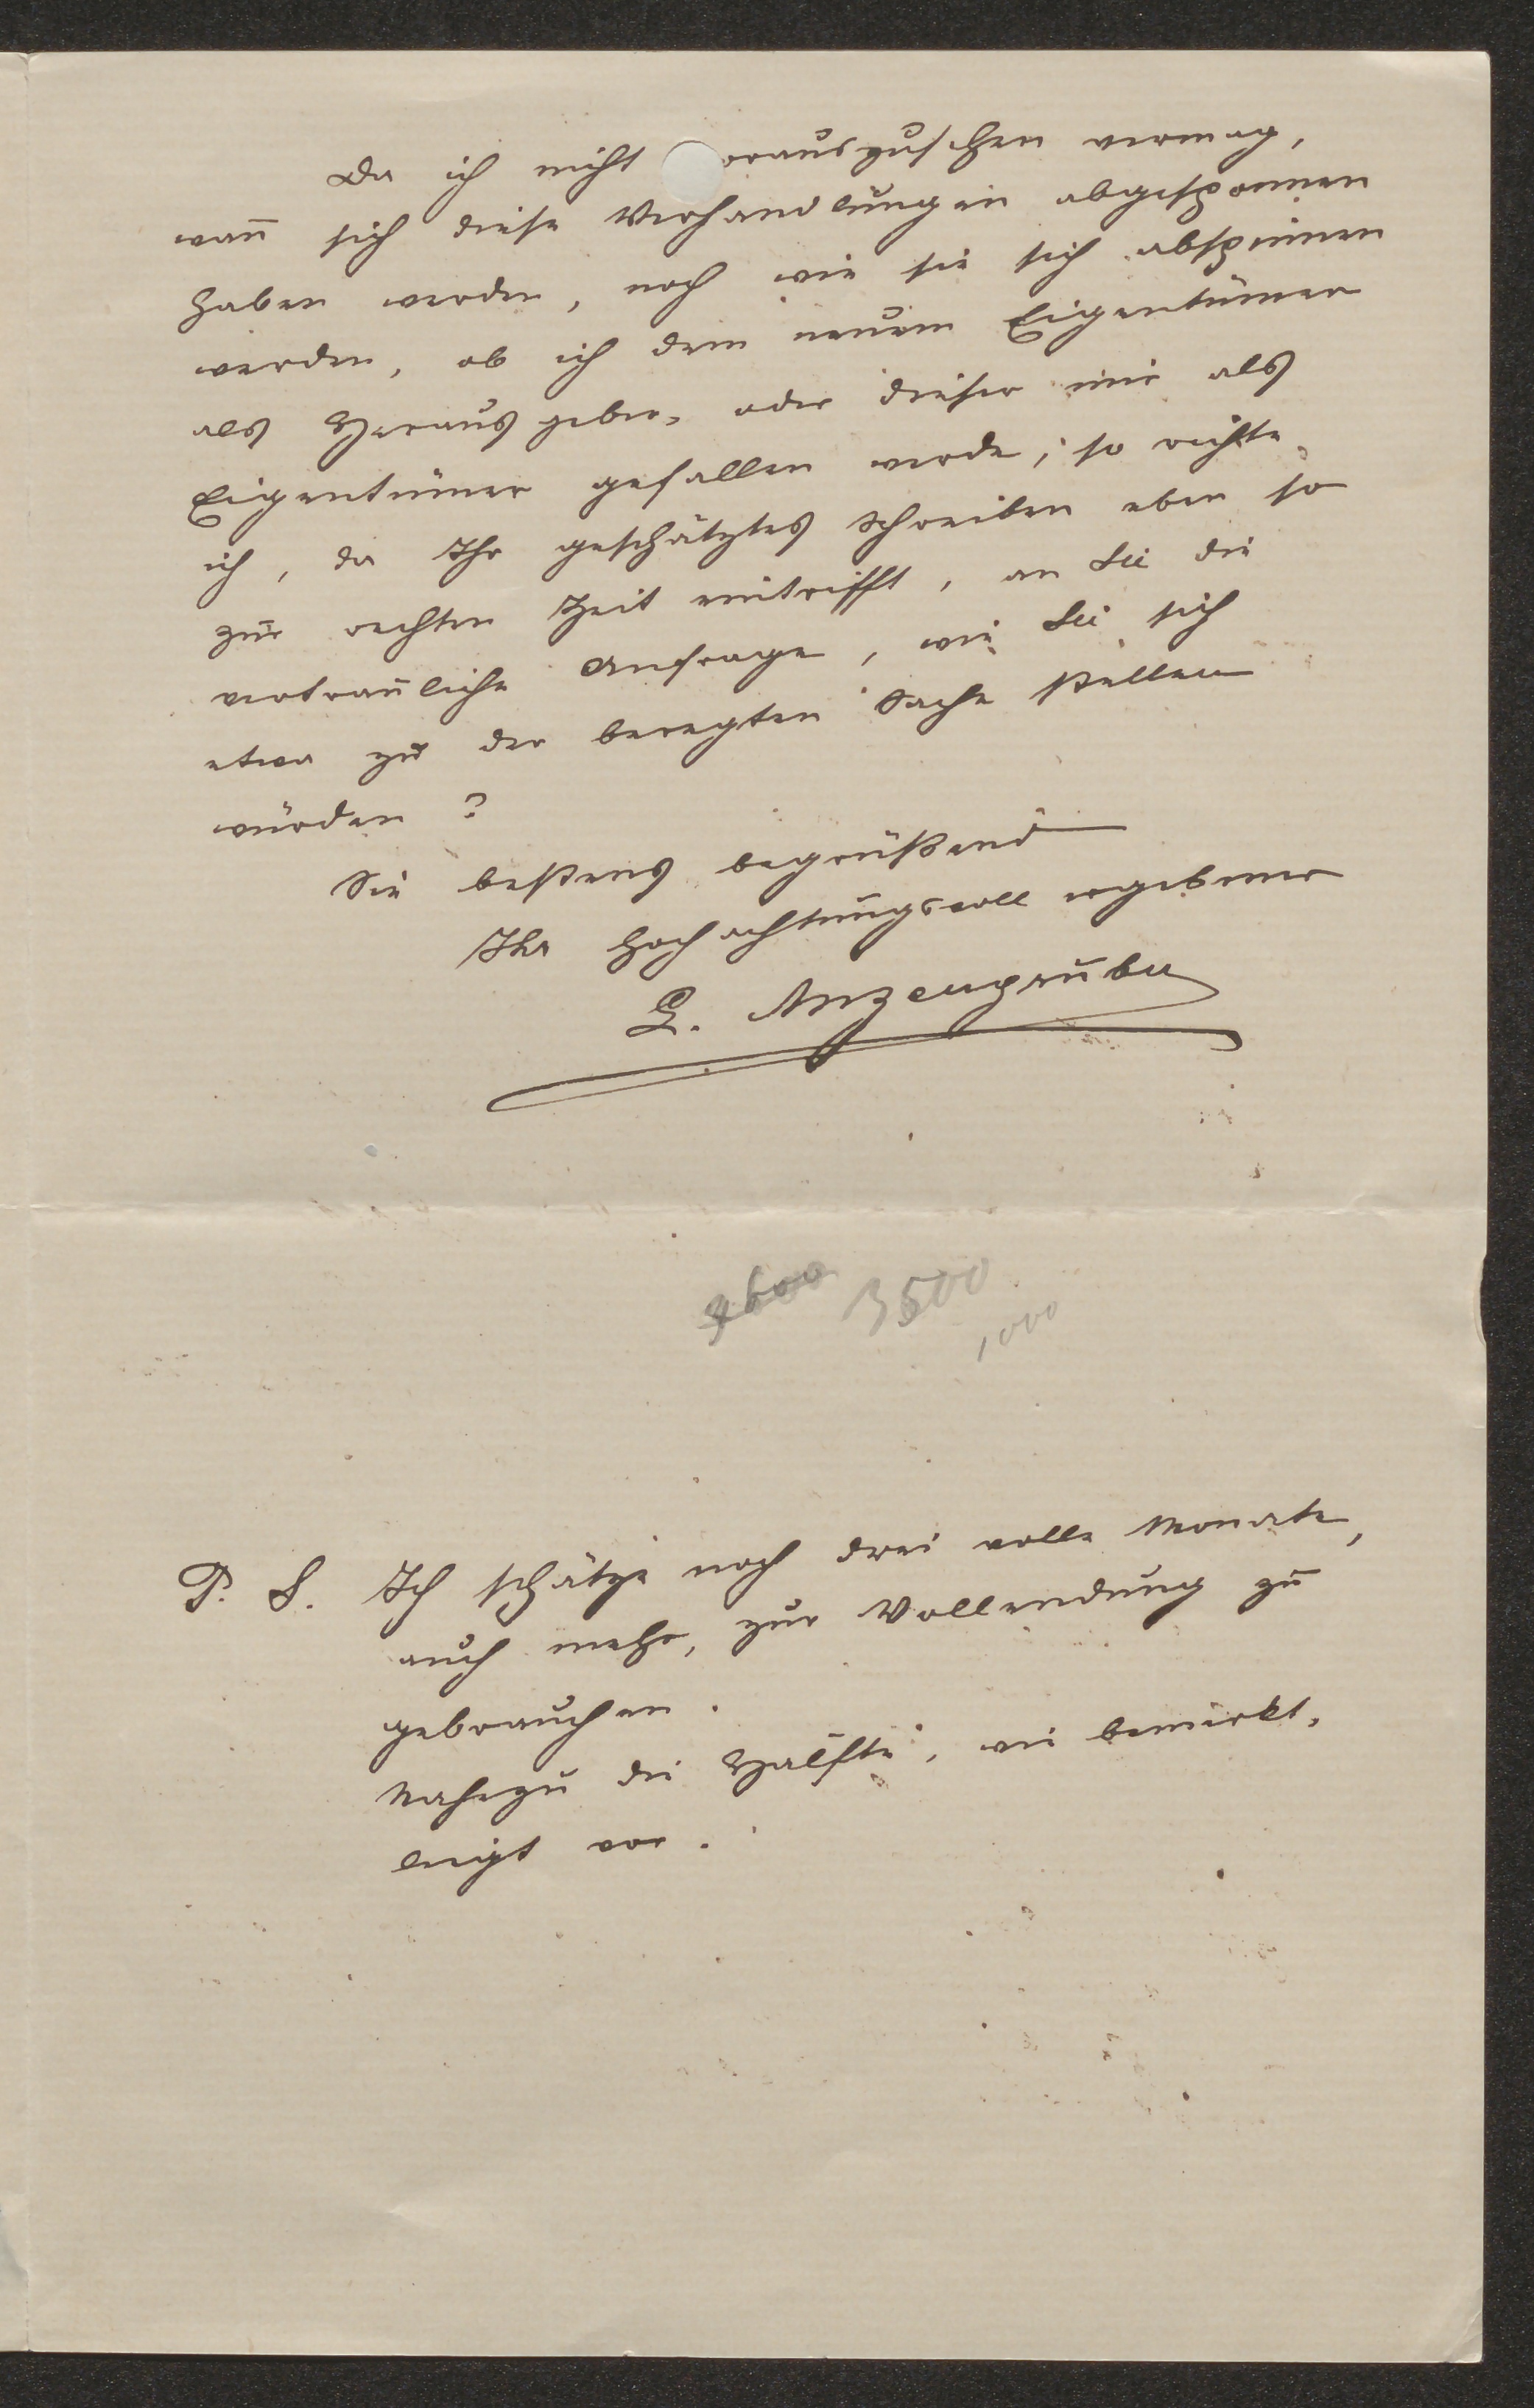 Da ich nicht vorauszusehen vermag,
wañ sich diese Verhandlungen abgesponnen
haben werden, noch wie sie sich abspinnen
werden, ob ich dem neuem Eigentümer
als Herausgeber, oder dieser mir als
Eigentümer gefallen werde; so richte
ich, da Ihr geschätztes Schreiben eben so
zur rechten Zeit eintrifft, an Sie die
vertrauliche Anfrage, wie Sie sich
etwa zu der beregten Sache stellen
würden?
Sie bestens begrüßend
Ihr hochachtungsvoll ergebener
L. Anzengruber
3500
1000
P. S. Ich schätze noch drei volle Monate,
auch mehr, zur Vollendung zu
gebrauchen.
Nahezu die Hälfte, wie bemerkt,
liegt vor.